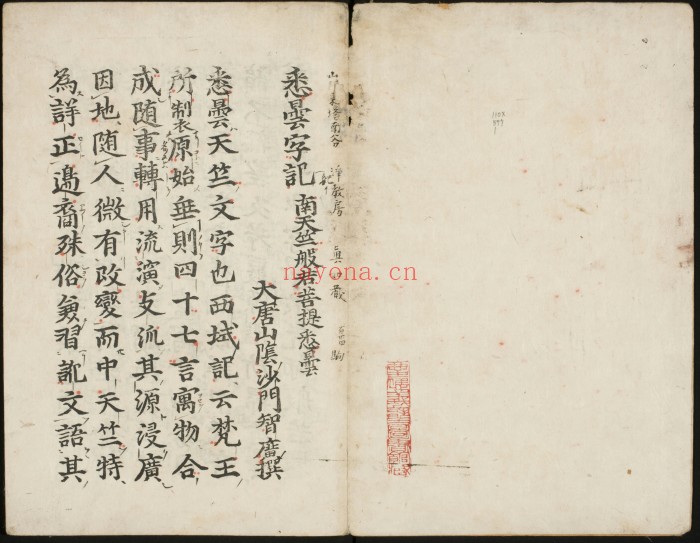 南谷 淨教房 真 藏
悉曇字記 南天竺般若菩提悉曇
大唐山陰沙門智廣撰
悉曇天竺文字也西域記云梵王
所製原始垂則四十七言寓物合
成随事轉用流演支流其源浸廣
因地随人微有改變而中天竺特
為詳正邊裔殊俗兼習訛文語其
nayona.cn